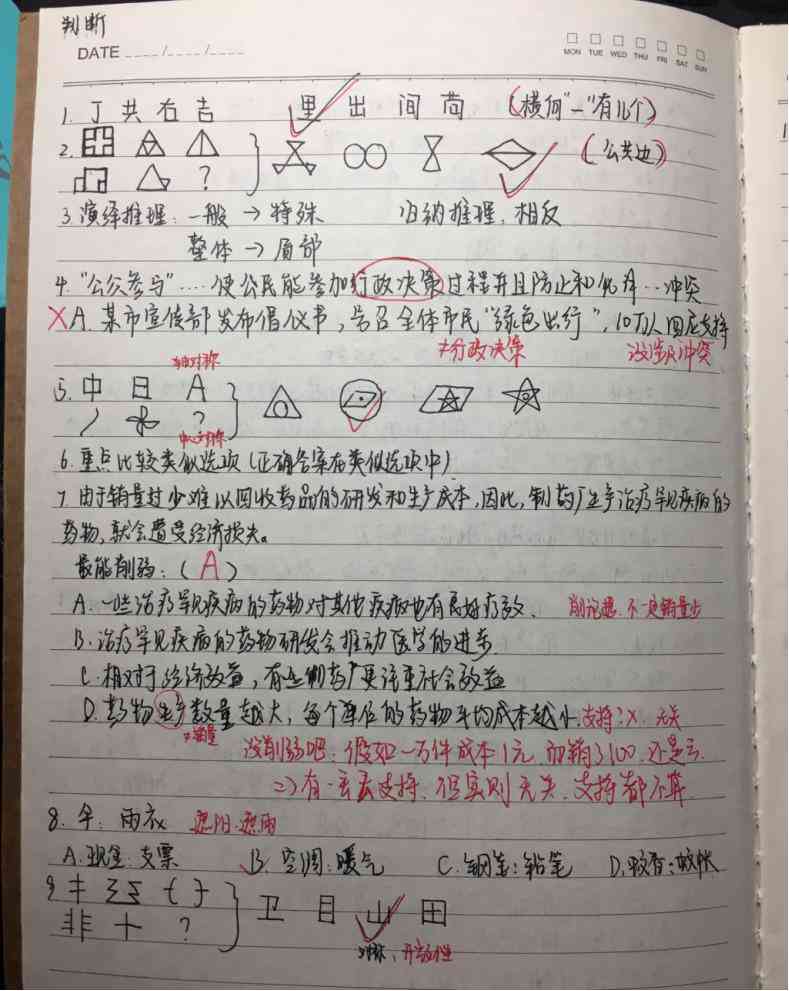 判断
DATE ____/____/____
MON TUE WED THU FRI SAT SUN
1. 丁 共 右 吉 里 出 间 苘 (横向"一"有几个)
2. ? (公共边)
3. 演绎推理:一般 → 特殊 归纳推理,相反
整体 → 局部
4. "公众参与"....使公民能参加行政决策过程并且防止和化解…冲突
XA. 某市宣传部发布倡议书,号召全体市民"绿色出行",10万人回应支持
≠行政决策 没涉及冲突
轴对称
5. 中 日 A
?
中心对称
6. 重点比较类似选项(正确答案在类似选项中)
7. 由于销量过少难以回收药品的研发和生产成本,因此,制药厂生产治疗罕见疾病的
药物,就会遭受经济损失。
最能削弱:(A)
A. 一些治疗罕见疾病的药物对其他疾病也有良好疗效. 削论据.不一定销量少
B. 治疗罕见疾病的药物研发会推动医学的进步
C. 相对于经济效益,有些制药厂更注重社会效益
D. 药物生产数量越大,每个单位的药物平均成本越小.支持?X.无关
≠销量
没削弱吧.假如一万件成本1元.而销了100.还是亏.
=>有一丢丢支持.但实则无关.支持都不算
8. 伞:雨衣 遮阳.遮雨
A. 现金:支票 B. 空调:暖气 C. 钢笔:铅笔 D. 蚊香:蚊帐
9.
非 十 ? 卫 目 山 田
对称、开放性